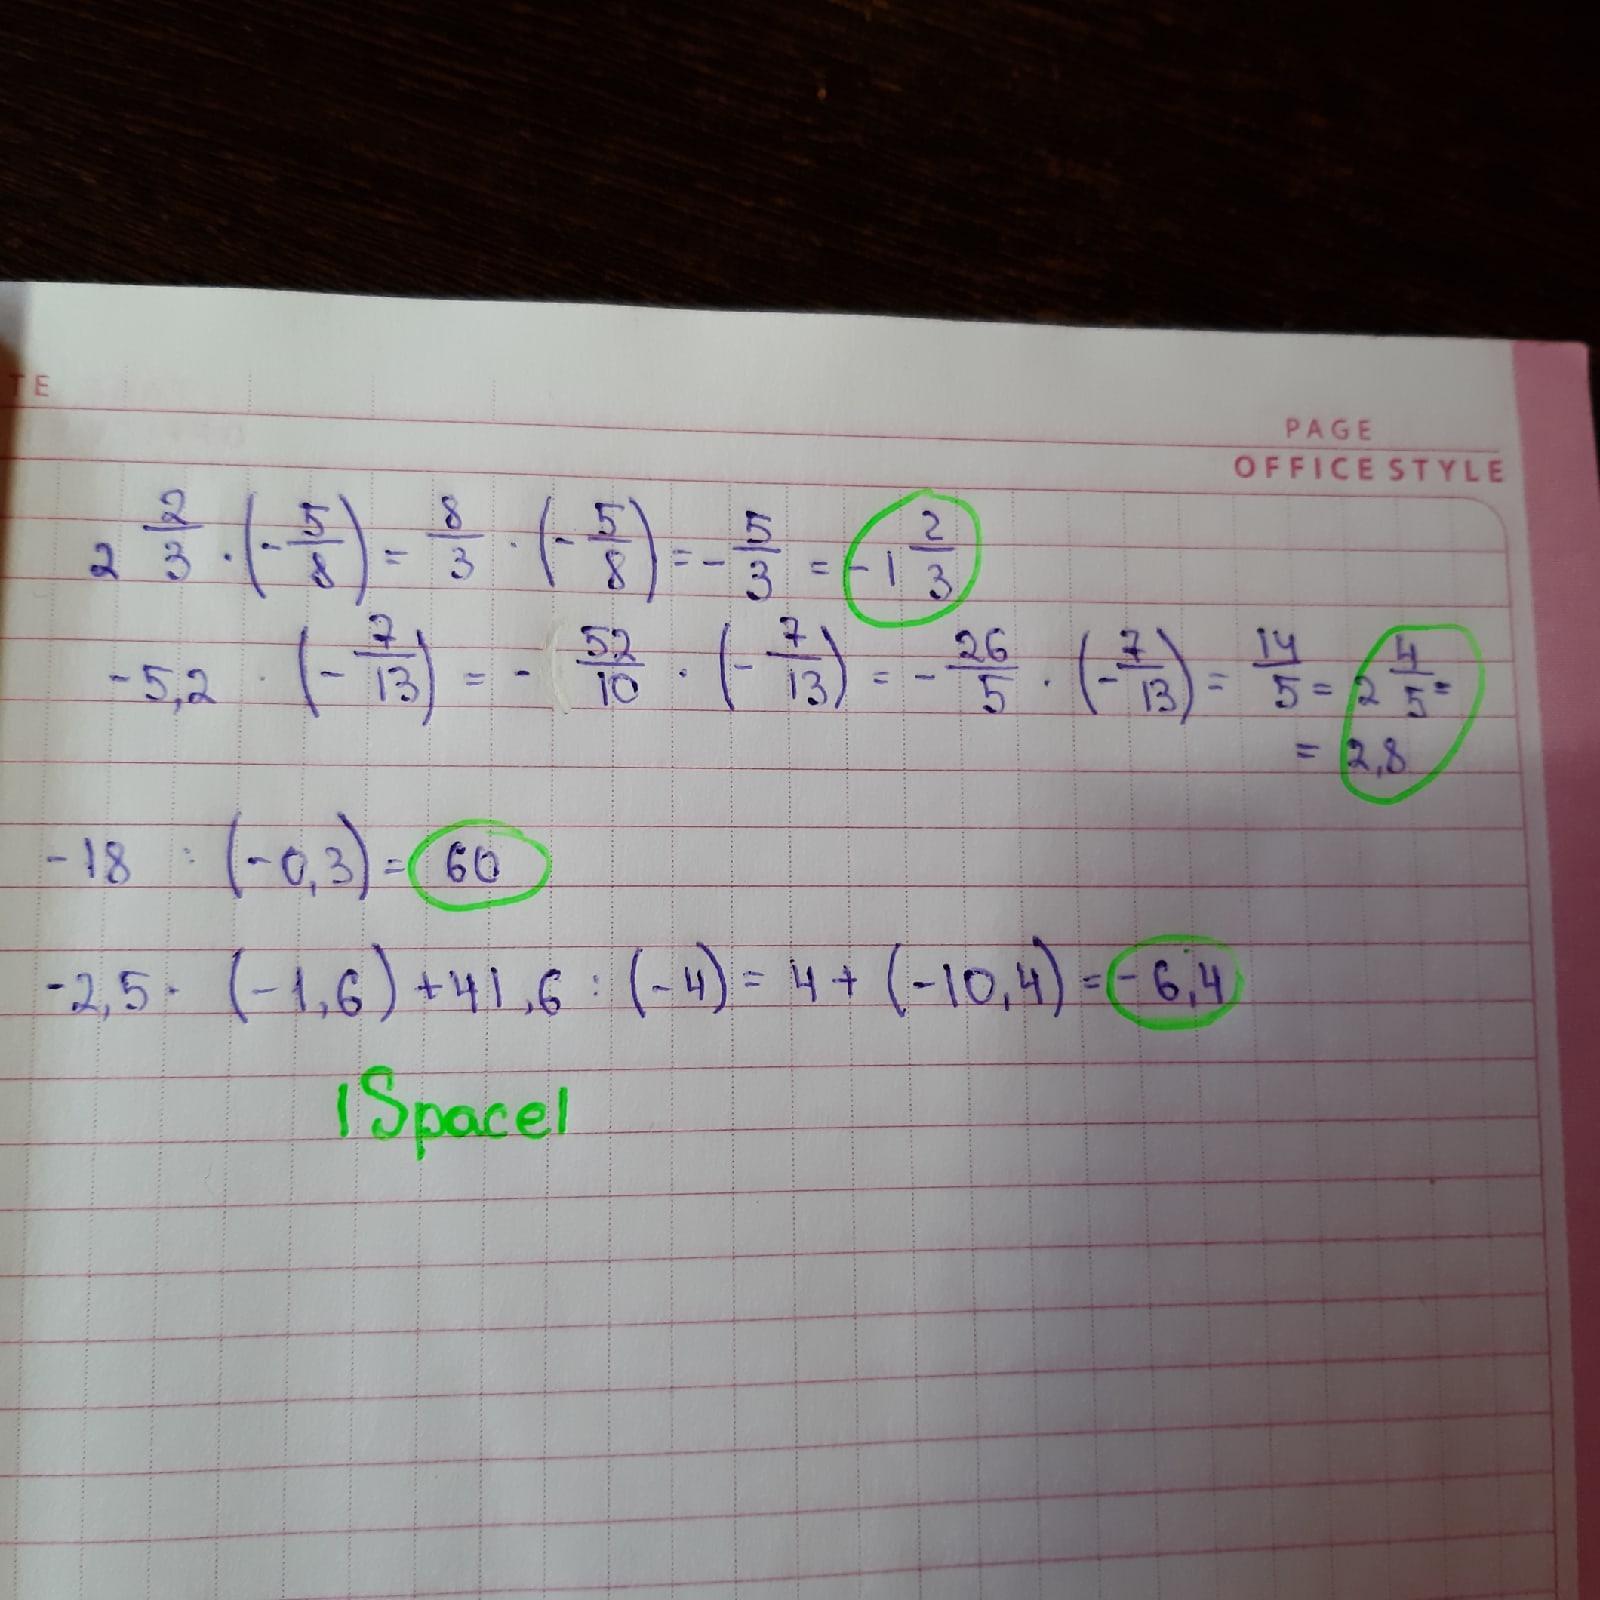 TE
PAGE
OFFICE STYLE
2 2/3 · (- 5/8) = 8/3 · (- 5/8) = - 5/3 = -1 2/3
-5,2 · (- 7/13) = - 52/10 · (- 7/13) = - 26/5 · (- 7/13) = 14/5 = 2 4/5 =
= 2,8
-18 : (-0,3) = 60
-2,5 · (-1,6) + 41,6 : (-4) = 4 + (-10,4) = -6,4
|Space|